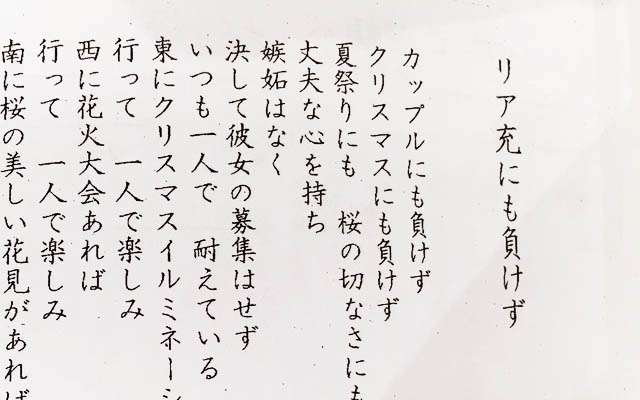 リア充にも負けず
カップルにも負けず
クリスマスにも負けず
夏祭りにも 桜の切なさにも
丈夫な心を持ち
嫉妬はなく
決して彼女の募集はせず
いつも一人で 耐えている
東にクリスマスイルミネーシ
行って 一人で楽しみ
西に花火大会あれば
行って 一人で楽しみ
南に桜の美しい花見があれば